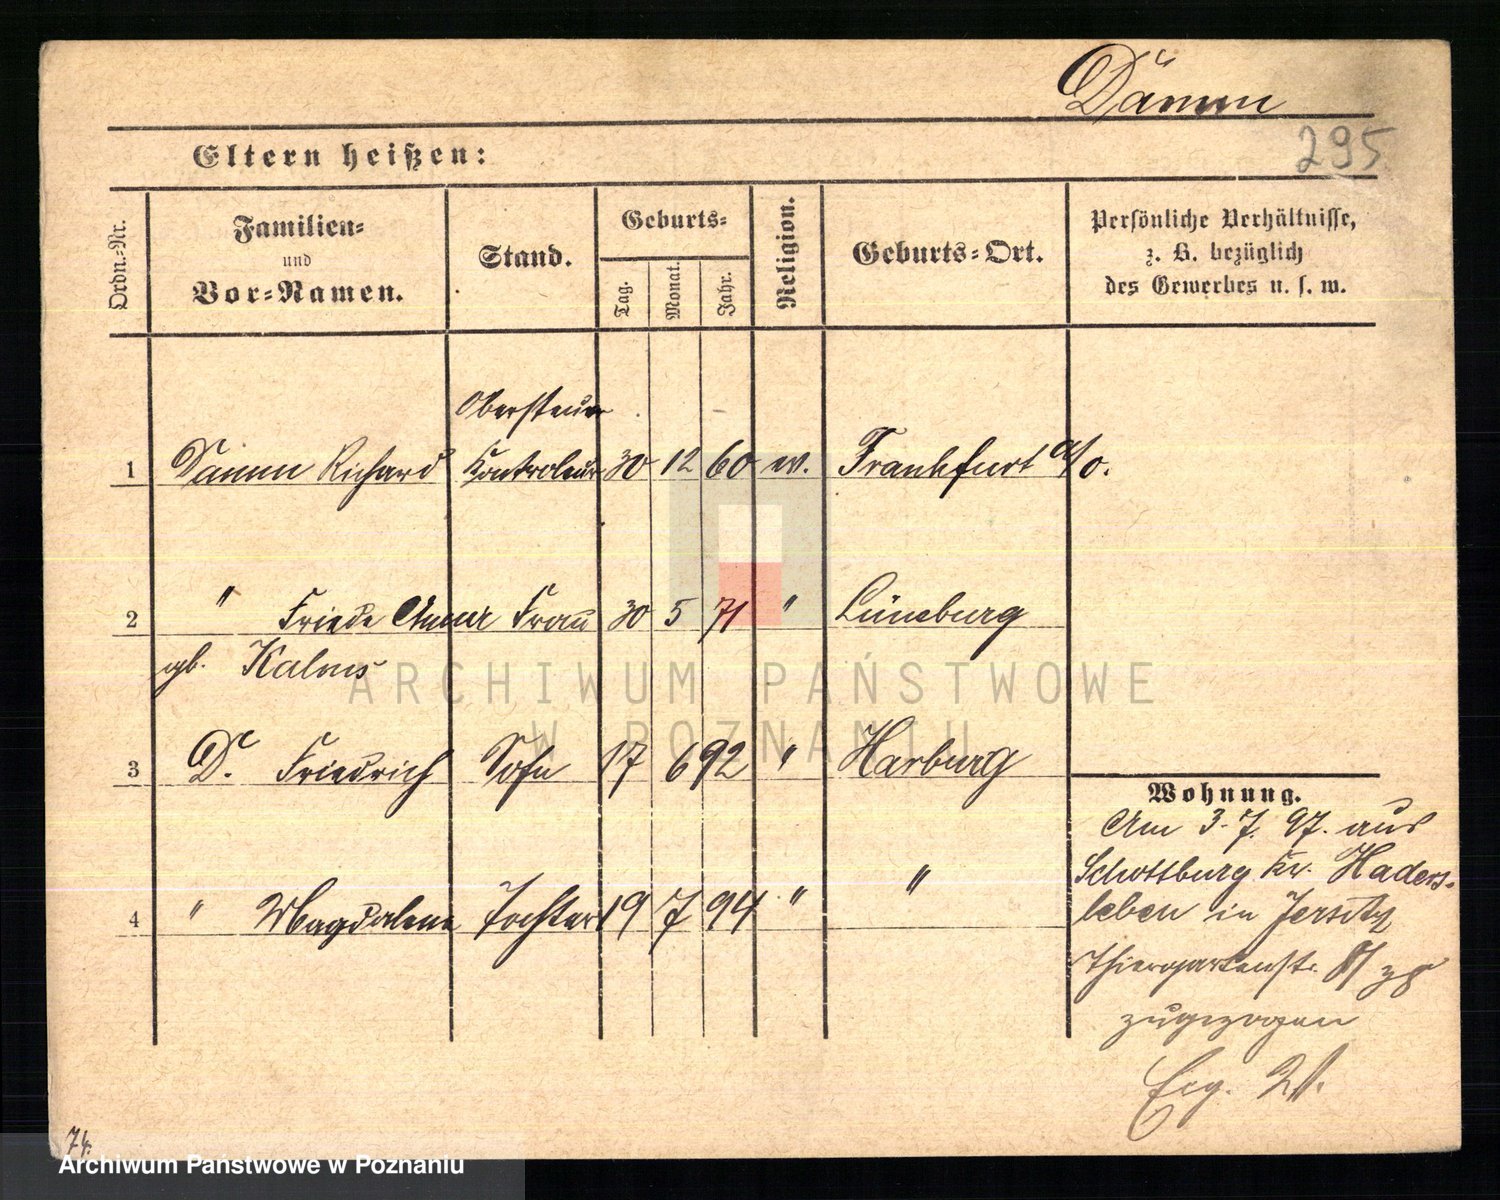 Dämm
295
Eltern heißen:
Ordn.-Nr.
Familien-
und
Vor-Namen.
Stand.
Geburts-
Tag.
Monat.
Jahr.
Religion.
Geburts-Ort.
Persönliche Verhältnisse,
z. B. bezüglich
des Gewerbes u. s. w.
Obersteuer
1 Dämm Richard Kontroleur 30 12 60 ev. Frankfurt a/O.
2 " Friede Frau 30 5 71 " Lüneburg
gb. Kalms
3 D. Friedrich Sohn 17 6 92 " Harburg
4 " Magdalene Tochter 19 7 94 " "
Wohnung.
Am 3.7.97. aus
Schottburg Kr. Haders-
leben in Jersitz
Thiergartenstr.
zugezogen
74.
ARCHIWUM PAŃSTWOWE
W POZNANIU
Archiwum Państwowe w Poznaniu